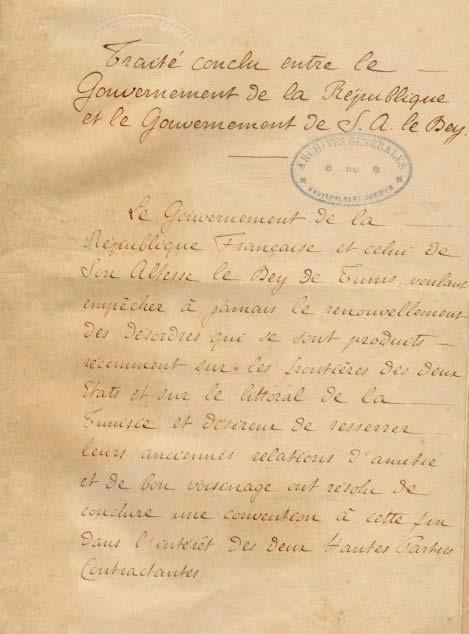 Traité conclu entre le —
Gouvernement de la République
et le Gouvernement de S. A. le Bey.
ARCHIVES GÉNÉRALES
DU
GOUVERNEMENT TUNISIEN
Le Gouvernement de la —
République Française et celui de
Son Altesse le Bey de Tunis, voulant
empêcher à jamais le renouvellement
des désordres qui se sont produits —
récemment sur les frontières des deux
États et sur le littoral de la —
Tunisie et désireux de resserrer —
leurs anciennes relations d'amitié
et de bon voisinage ont résolu de
conclure une convention à cette fin
dans l'intérêt des deux Hautes Parties
Contractantes.